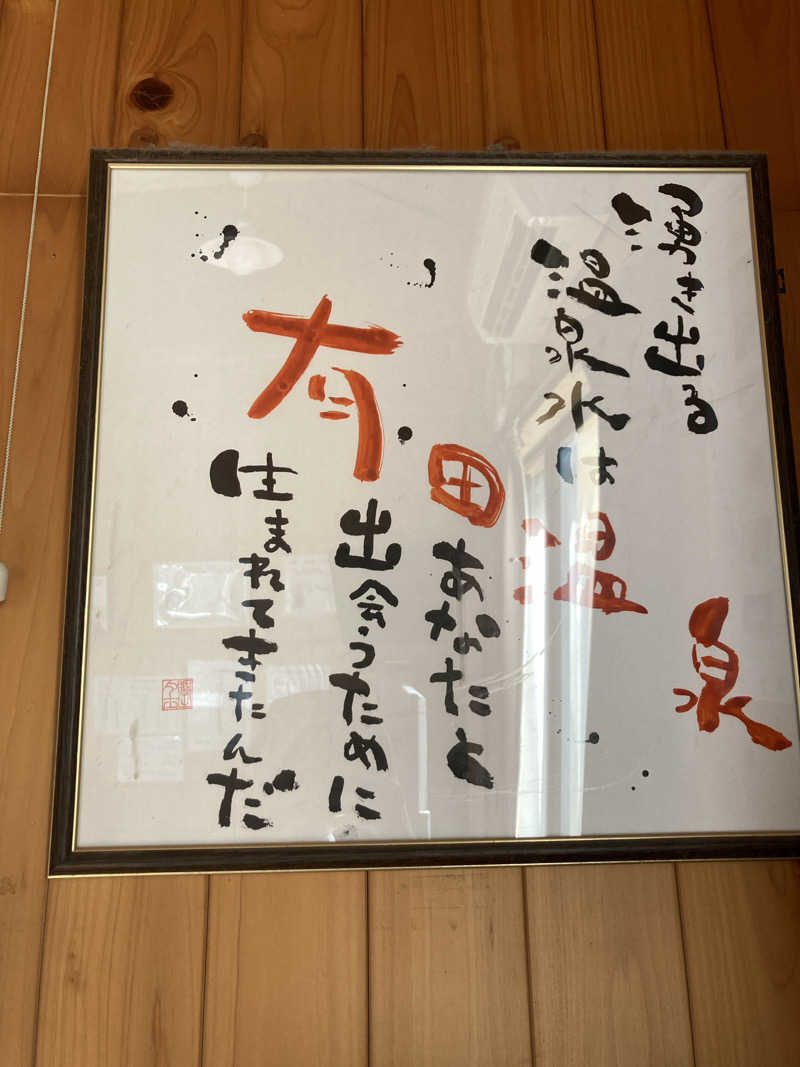 湧き出る
温泉水は
有田温泉
あなたと
出会うために
生まれてきたんだ